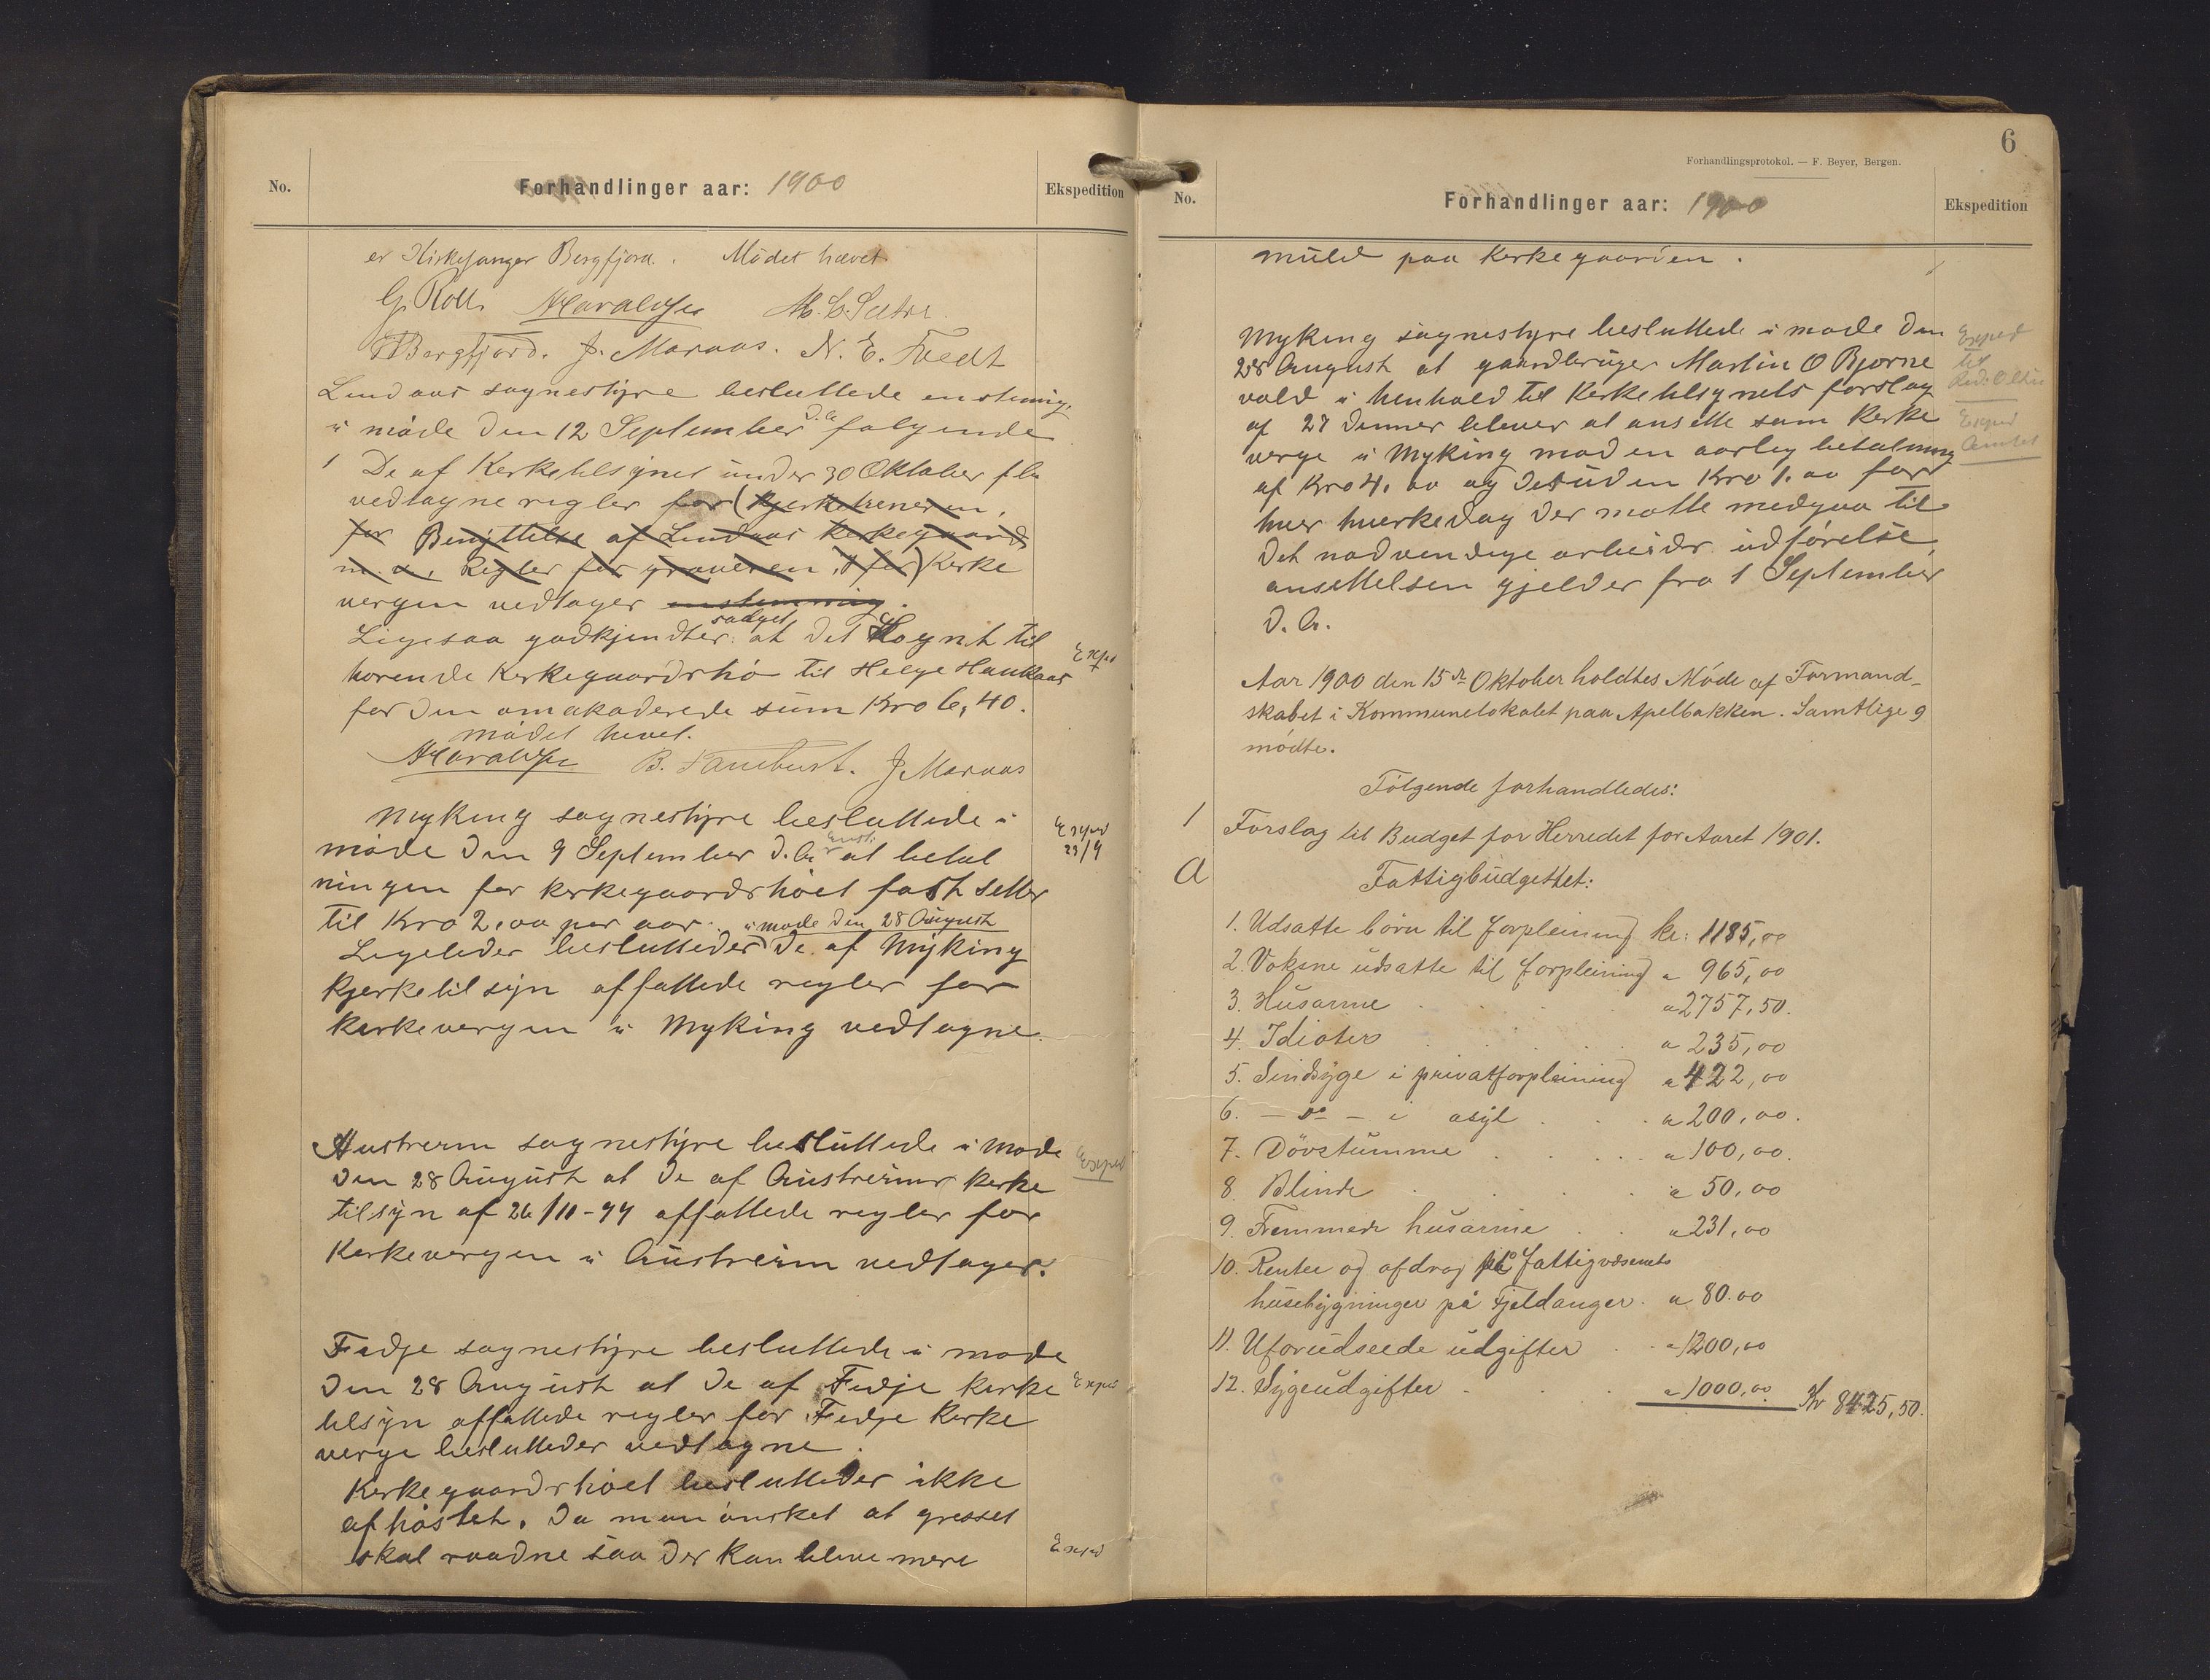 No.
Forhandlinger aar: 1900
Ekspedition
er Kirkesanger Bergfjord. Mödet hævet
G. Kolls AHaraldsen M. C. Sætre
EBergfjord. J. Maraas. N. E. Tvedt
Lindaas sognestyre besluttede enstemig,
i møde den 12 September d. a. følgende
1 De af Kerketilsynet under 30 Oktober f
vedtagne regler for (kjerketreneren,
for Benyttelse af Lindaas Kerkegaard
m. v. Regler for graveren, for) Kerke
vergen vedtages enstemmig.
Ligesaa godkjendtes: at det salget Lygnt til
hørende Kerkegaardshø til Helge Haukaas
for den omakoderede sum Kro 6,40.
Exp
mödet hevet.
AHaraldsen B. Fammburt. J. Maraas
Myking sognestyre besluttede i
møde den 9 September d. A. enst. at betal
ningen for kerkegaardshöet fasth setter
til Kro 2,00 per aar. i mode den 28 August
Exped
23/9
Legeledes besluttedes de af Myking
kjerketilsyn affattede regler for
kerkevergen i Myking vedtagne.
Austreim sognestyre besluttede i mode
den 28 August at de af Austreims kerke
tilsyn af 26/10-99 affattede regler for
Kerkevergen i Austreim vedtages.
Exped
Fedje sognestyre besluttede i mode
den 28 August at de af Fedje kerke
tilsyn affattede regler for Fedje Kerke
verge besluttedes vedtagne.
Exped
Kerkegaardshöet besluttedes ikke
afhöstet. Da man önsket at gresset
skal raadne saa der kan bleve mere
Exped
6
Forhandlingsprotokol. — F. Beyer, Bergen.
No.
Forhandlinger aar: 1900
Ekspedition
muld paa kerkegaarden.
Myking sognestyre besluttede i mode den
28 August at gaardbruger Martin O Bjorne
vold i henhold til Kerketilsynets forslag
af 27 denner blever at ansette som Kerke
verge i Myking mod en aarleg betalning
af Kro 4.00 og desuden Kro 1.00 for
hver hverkedag der matte medgaa til
det nodvendige arbeider udførelse,
ansettelsen gjelder fra 1 September
d. A.
Exped
til
Exped
Amtet
Aar 1900 den 15de Oktober holdtes Möde af Formand-
skabet i Kommunelokalet paa Apelbakken. Samtlige 9
mödte.
Fölgende forhandledes:
1 Forslag til Budget for Herredet for Aaret 1901.
a Fattigbudgettet:
1. Udsatte börn til forpleining kr: 1185,00
2. Voksne udsatte til forpleining " 965,00
3. Husarme " 2757,50.
4. Idioter " 235,00
5. Sindsyge i privatforpleining " 422,00
6. — do — i asyl " 200,00.
7. Dövstumme " 100,00.
8. Blinde " 50,00
9. Fremmede husarme " 231,00
10. Renter og afdrag på fattigvæsenets
husebygninger på Fjeldanger. " 80.00
11. Uforudseede udgifter " 1200,00
12. Sygeudgifter " 1000,00 Kr 8425,50.